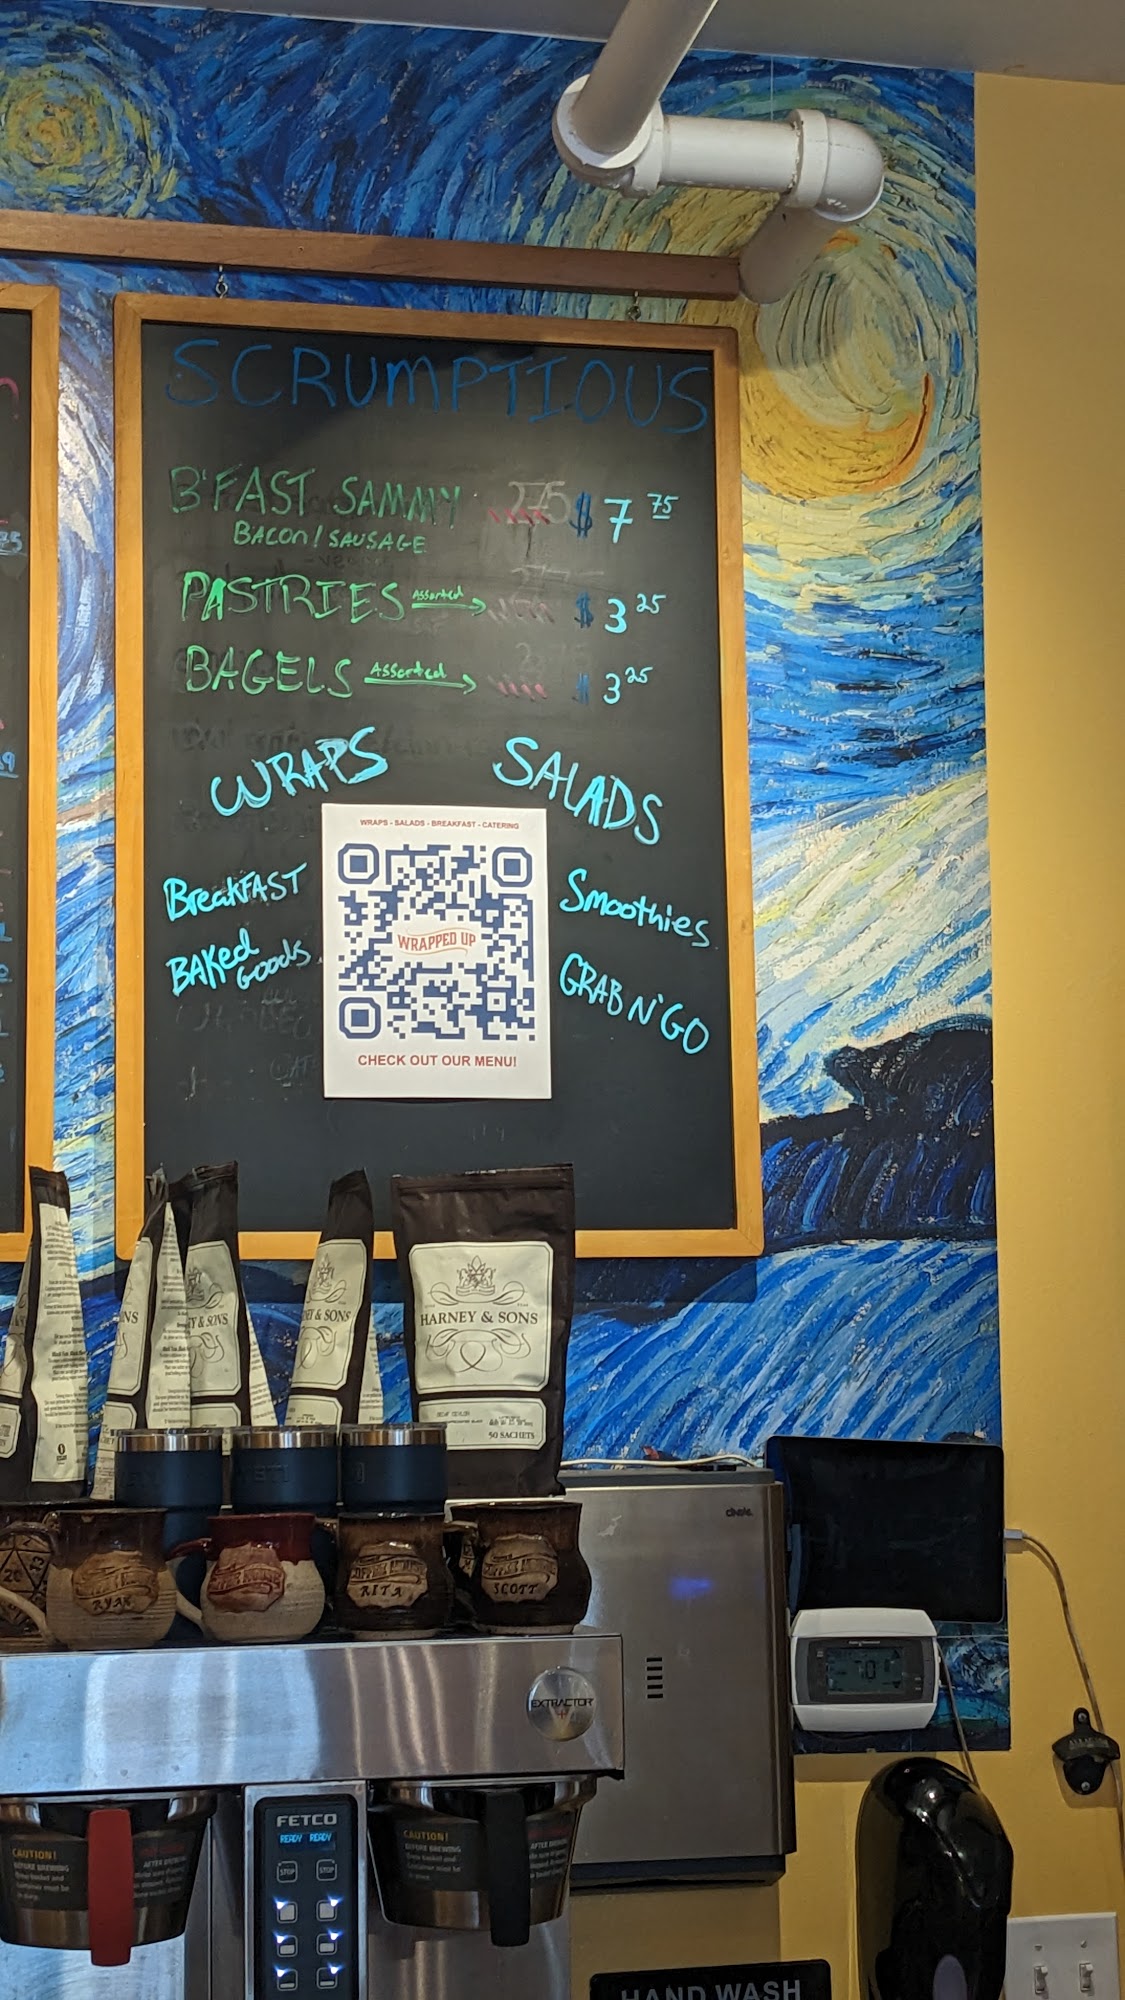 SCRUMPTIOUS
B'FAST SAMMY $7 75
BACON/SAUSAGE
PASTRIES Assorted $3 25
BAGELS Assorted $3 25
WRAPS SALADS
WRAPS - SALADS - BREAKFAST - CATERING
BreakFAST
Smoothies
WRAPPED UP
BAKed Goods
GRAB N' GO
CHECK OUT OUR MENU!
HARNEY & SONS
50 SACHETS
RYAN
RITA
SCOTT
EXTRACTOR
70
FETCO
READY READY
STOP STOP
CAUTION!
BEFORE BREWING
CAUTION!
BEFORE BREWING
AFTER BREWING
HAND WASH